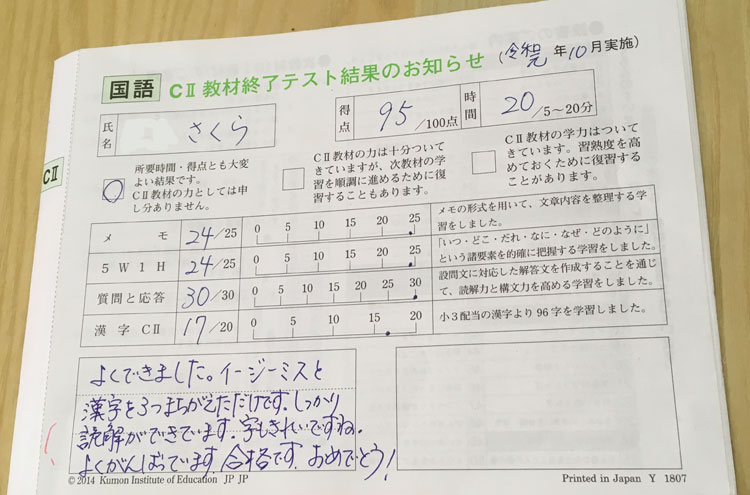 国語 CⅡ教材終了テスト結果のお知らせ (令和元年10月実施)
氏名 さくら
得点 95/100点
時間 20/5～20分
CⅡ
所要時間・得点とも大変
よい結果です。
CⅡ教材の力としては申
し分ありません。
CⅡ教材の力は十分ついて
きていますが、次教材の学
習を順調に進めるために復
習することもあります。
CⅡ教材の学力はついて
きています。習熟度を高
めておくために復習する
ことがあります。
メモ 24/25 0 5 10 15 20 25
メモの形式を用いて、文章内容を整理する学
習をしました。
5W1H 24/25 0 5 10 15 20 25
「いつ・どこ・だれ・なに・なぜ・どのように」
という諸要素を的確に把握する学習をしました。
質問と応答 30/30 0 5 10 15 20 25 30
設問文に対応した解答文を作成することを通じ
て、読解力と構文力を高める学習をしました。
漢字CⅡ 17/20 0 5 10 15 20
小3配当の漢字より96字を学習しました。
よくできました。イージーミスと
漢字を3つまちがえただけです。しっかり
読解ができています。字もきれいですね。
よくがんばっています。合格です。おめでとう!
© 2014 Kumon Institute of Education JP JP
Printed in Japan Y 1807